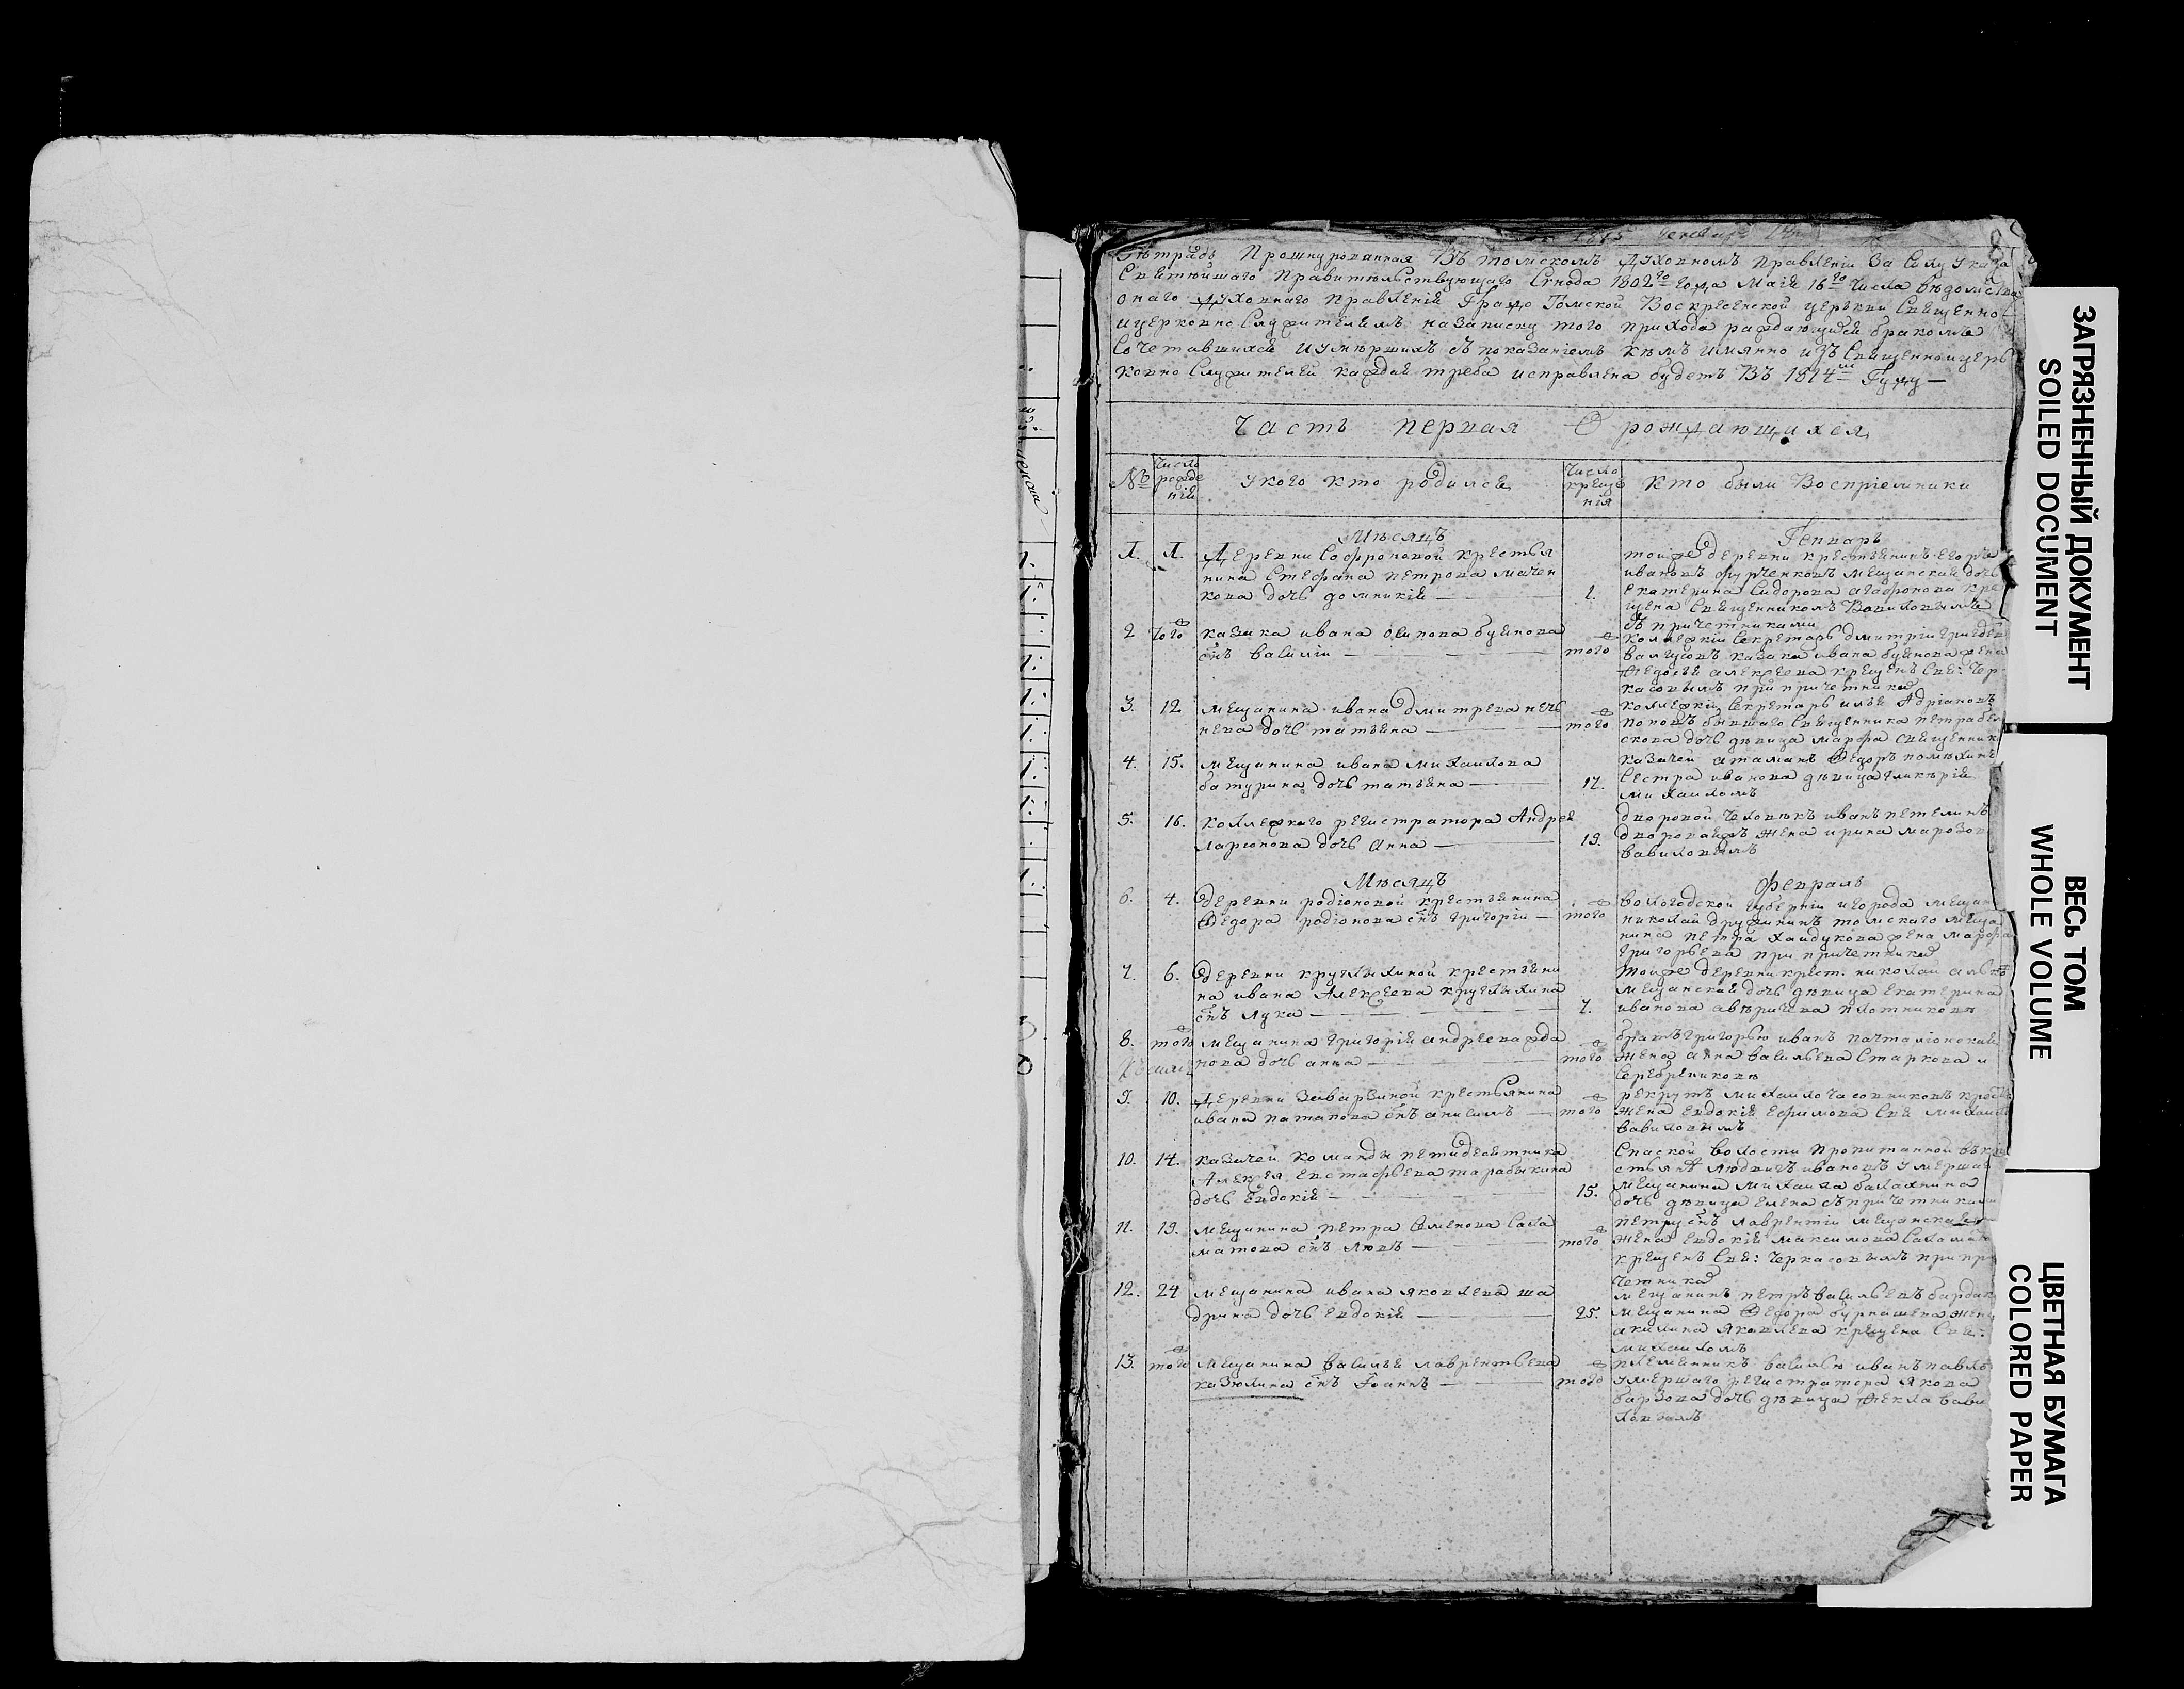 1815 Генваря
Тѣтрадь Прошнурованная Въ томскомъ Духовномъ Правленіи За Силу Указа
Святѣйшаго Правительствующаго Сѵнода 1802го года Маія 16го числа вѣдомства
онаго Духовнаго Правленія Градо Томской Воскресенской церкви Священно-
ицерковно Служителемъ назаписку того прихода раждающихся бракомъ
Сочетавшихся иумѣршихъ съ показаніемъ кѣмъ имянно изъ Священноицерь
ковно Служителей каждая треба исправлена будетъ Въ 1814м Году —
Часть первая О рождающихся
№ Число рожде нія укого кто родился Число креще нія Кто были Воспріемники
Мѣсяцъ Генварь
1. 1. Деревни Софроновой крестья
нина Стефана петрова мачен
кова дочь домникія — 1.
тойже деревни крестьянинъ егоръ
ивановъ фурченковъ мещанская дочь
екатерина Сидорова агафонова кре
щена Священникомъ Вавиловымъ
съ причетниками
2 того казака ивана осипова буйнова
снъ василіи — того
коллежкіи Секретарь дмитріи
казака ивана буйнова жена
Ѳедосья алексеева крещенъ Свя: Чер-
касовымъ при причетника
3. 12 мещанина ивана дмитрева
нева дочь татьяна — того
коллежкіи Секретарь илья Адріановъ
поповъ бывшаго Священника петра
скова дочь дѣвица марфа священник
4. 15. мещанина ивана михаилова
батурина дочь татьяна — 17.
казачеи атаманъ Ѳедоръ
Сестра иванова дѣвица гликѣрія
михаиломъ
5. 16. Коллежкаго регистратора Андрея
ларіонова дочь Анна — 19.
дворовой человѣкъ иванъ петелинъ
жена ирина
вавиловымъ
Мѣсяцъ Февраль
6. 4. деревни родіоновой крестьянина
Ѳедора родіонова снъ григоріи — того
вологодской губерніи игорода мещан
николаи дружининъ томскаго меща
нина петра хаидукова жена марфа
григорьева при причетника
7. 6. деревни круглыхиной крестьяни
на ивана Алексеева круглыхина
снъ лука — 7.
тойже деревни крест. николаи
мещанская дочь дѣвица екатерина
иванова плотниковъ
8. того мещанина григорія андреева жда
нова дочь анна — того
братъ григорью иванъ
жена анна васильева Старкова и
Серебрениковъ
9. 10. Деревни Заварзиной крестьянина
ивана патапова снъ анисимъ — того
рекрутъ михаило часовниковъ
жена евдокія ефимова Свя
вавиловымъ
10. 14. казачеи команды петидесятника
Алексея евстафьева тарабыкина
дочь евдокія — 15.
Спаской волости
людвигъ ивановъ умершаго
мещанина михаила балахнина
дочь дѣвица елена съпричетниками
11. 19. мещанина петра Семенова Сала
матова снъ левъ — того
петру снъ лаврентіи мещанская
жена евдокія максимова Саламат
крещенъ Свя: Черкасовымъ при при
четника
12. 24 мещанина ивана яковлева ша
дрина дочь евдокія — 25.
мещанинъ петръ васильевъ
мещанина Ѳедора бурнашева жена
акилина яковлева крещена Свя:
михаиломъ
13. того мещанина василья лаврентьева
казюлина снъ Іоаннъ — того
племянникъ василью иванъ
умершаго регистратора якова
дочь дѣвица Ѳекла вави
ловымъ
ЗАГРЯЗНЕННЫЙ ДОКУМЕНТ
SOILED DOCUMENT
ВЕСЬ ТОМ
WHOLE VOLUME
ЦВЕТНАЯ БУМАГА
COLORED PAPER